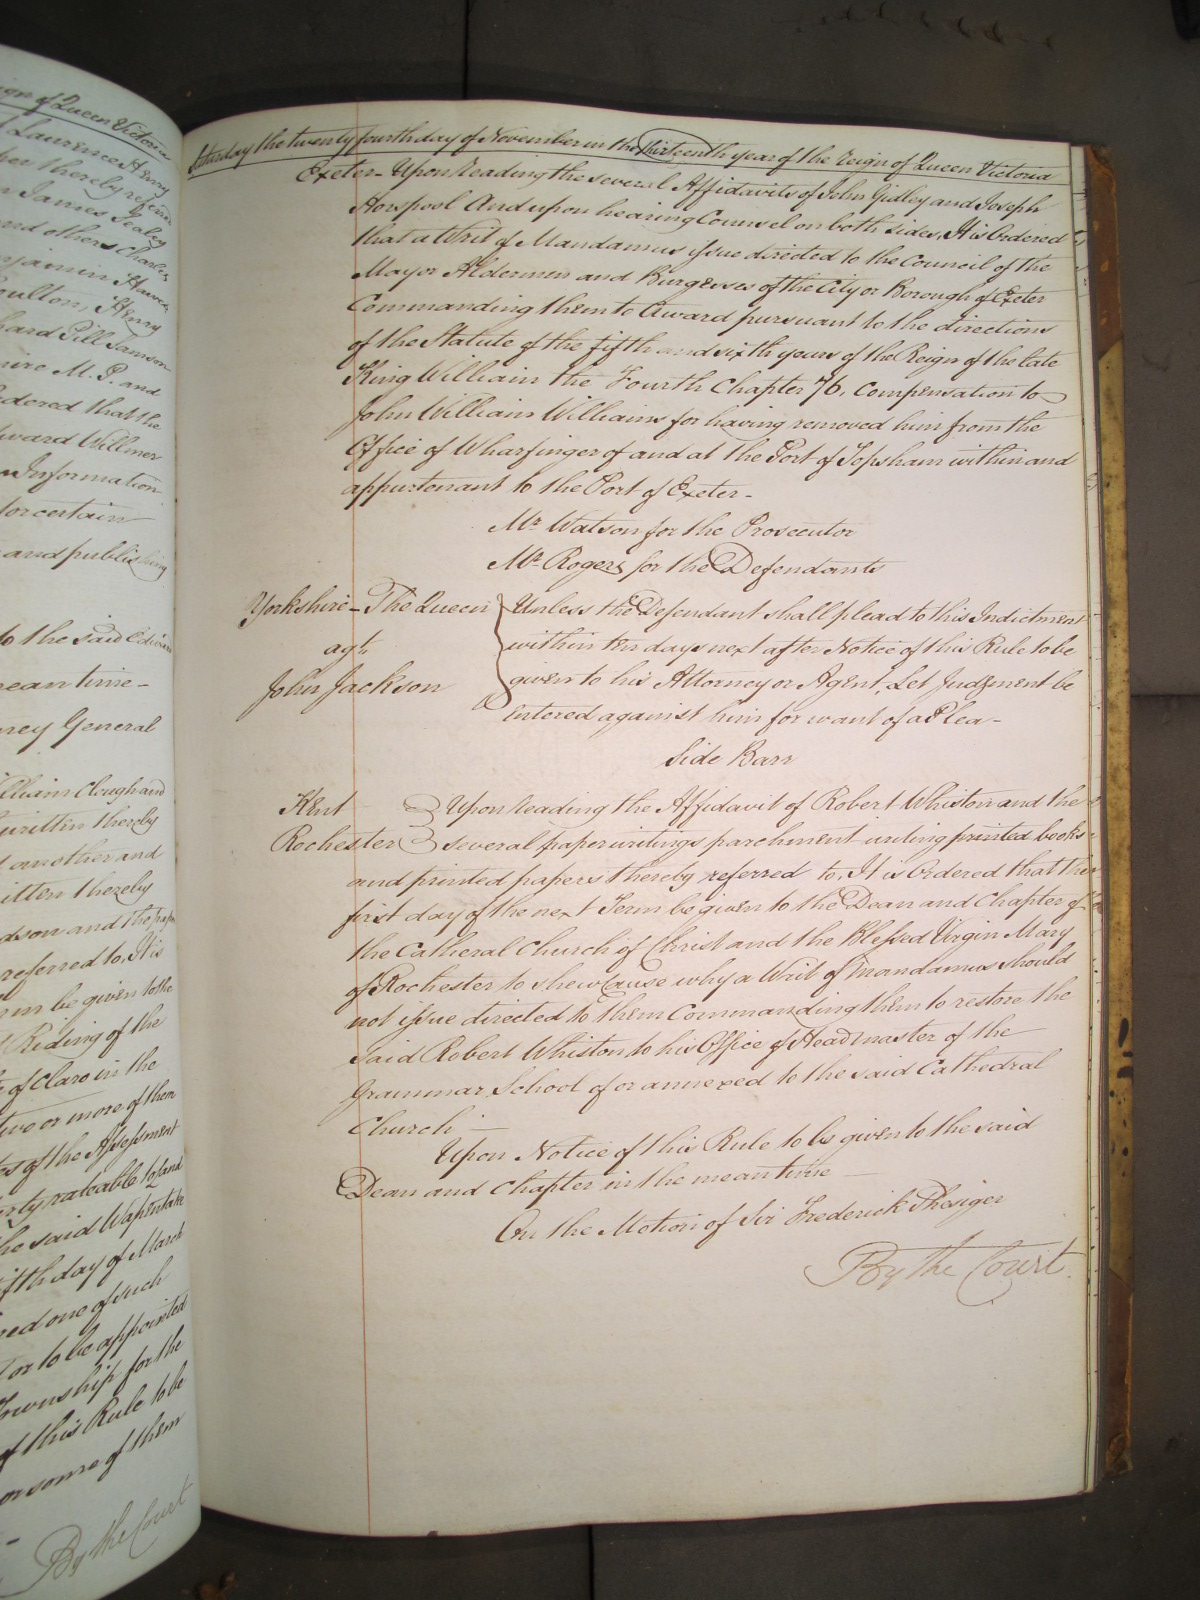 ign of Queen Victoria
Laurence Henry
per thereby referred
James Sealey
and others Charles
njamin Hawes
oulton, Henry
hard Gill Samson
M. P. and
dered that the
dward Willmer
Information
for certain
and publishing
to the said Edward
mean time -
ney General
William Clough and
written thereby
another and
itten thereby
dson and the paper
referred to, It is
rm be given to the
Riding of the
of Claro in the
two or more of them
of the Assessment
rty rateable to and
the said Wapentake
fifth day of March
one of such
or to be appointed
Township for the
of this Rule to be
or some of them
By the Court
Saturday the twenty fourth day of November in the thirteenth year of the Reign of Queen Victoria
Exeter - Upon Reading the several Affidavits of John Gidley and Joseph
Horspool And upon hearing Counsel on both sides, It is Ordered
that a Writ of Mandamus issue directed to the Council of the
Mayor Aldermen and Burgesses of the City or Borough of Exeter
Commanding them to Award pursuant to the directions
of the Statute of the fifth and sixth years of the Reign of the late
King William the Fourth Chapter 76, compensation to
John William Williams for having removed him from the
Office of Wharfinger of and at the Port of Topsham within and
appurtenant to the Port of Exeter -
Mr. Watson for the Prosecutor
Mr. Rogers for the Defendants
Yorkshire - The Queen } Unless the Defendant shall plead to this Indictment
agt. within ten days next after Notice of this Rule to be
John Jackson given to his Attorney or Agent, Let Judgment be
entered against him for want of a Plea -
Side Barr
Kent } Upon Reading the Affidavit of Robert Whiston and the
Rochester } several paper writings parchment writing printed books
and printed papers thereby referred to, It is Ordered that the
first day of the next Term be given to the Dean and Chapter of
the Catheral Church of Christ and the Blessed Virgin Mary
of Rochester to shew Cause why a Writ of Mandamus should
not issue directed to them Commanding them to restore the
said Robert Whiston to his Office of Head Master of the
Grammar School of or annexed to the said Cathedral
Church -
Upon Notice of this Rule to be given to the said
Dean and Chapter in the mean time
On the Motion of Sir Frederick Thesiger
By the Court.